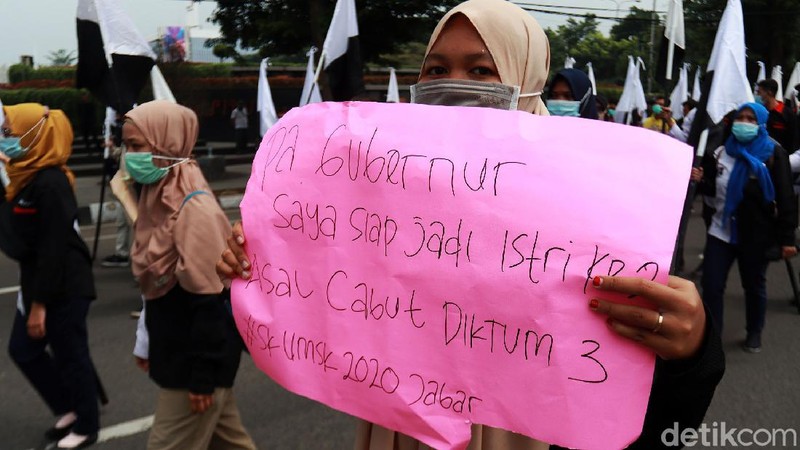 pa. Gubernur
saya siap jadi istri ke 2
Asal Cabut Diktum 3
#SK UMSK 2020 Jabar
detikcom